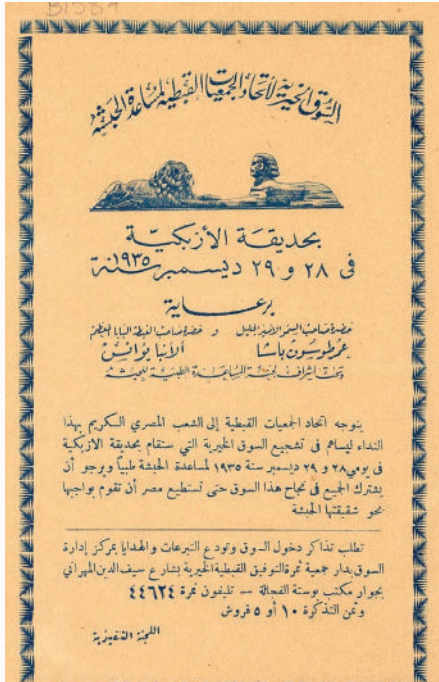 B1584
السوق الخيرية لاتحاد الجمعيات القبطية لمساعدة الحبشة
بحديقة الأزبكية
فى ٢٨ و ٢٩ ديسمبر سنة ١٩٣٥
برعاية
حضرة صاحب السمو الأمير الجليل و حضرة صاحب الغبطة البابا المعظم
عمر طوسون باشا الأنبا يؤانس
وتحت اشراف لجنة المساعدة الطبية للحبشة
يتوجه اتحاد الجمعيات القبطية إلى الشعب المصري الكريم بهذا
النداء ليساهم فى تشجيع السوق الخيرية التي ستقام بحديقة الازبكية
فى يومى ٢٨ و ٢٩ ديسمبر سنة ١٩٣٥ لمساعدة الحبشة طبياً ويرجو أن
يشترك الجميع فى نجاح هذا السوق حتى تستطيع مصر أن تقوم بواجبها
نحو شقيقتها الحبشة
تطلب تذاكر دخول السوق وتودع التبرعات والهدايا بمركز إدارة
السوق بدار جمعية ثمرة التوفيق القبطية الخيرية بشارع سيف الدين المهرانى
بجوار مكتب بوستة الفجالة — تليفون نمرة ٤٤٦٢٤
وثمن التذكرة ١٠ أو ٥ قروش
اللجنة التنفيذية